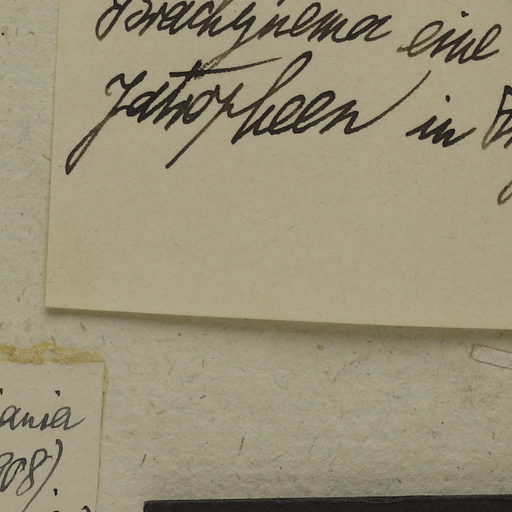 Brachynema eine
Jatropheen in
908)